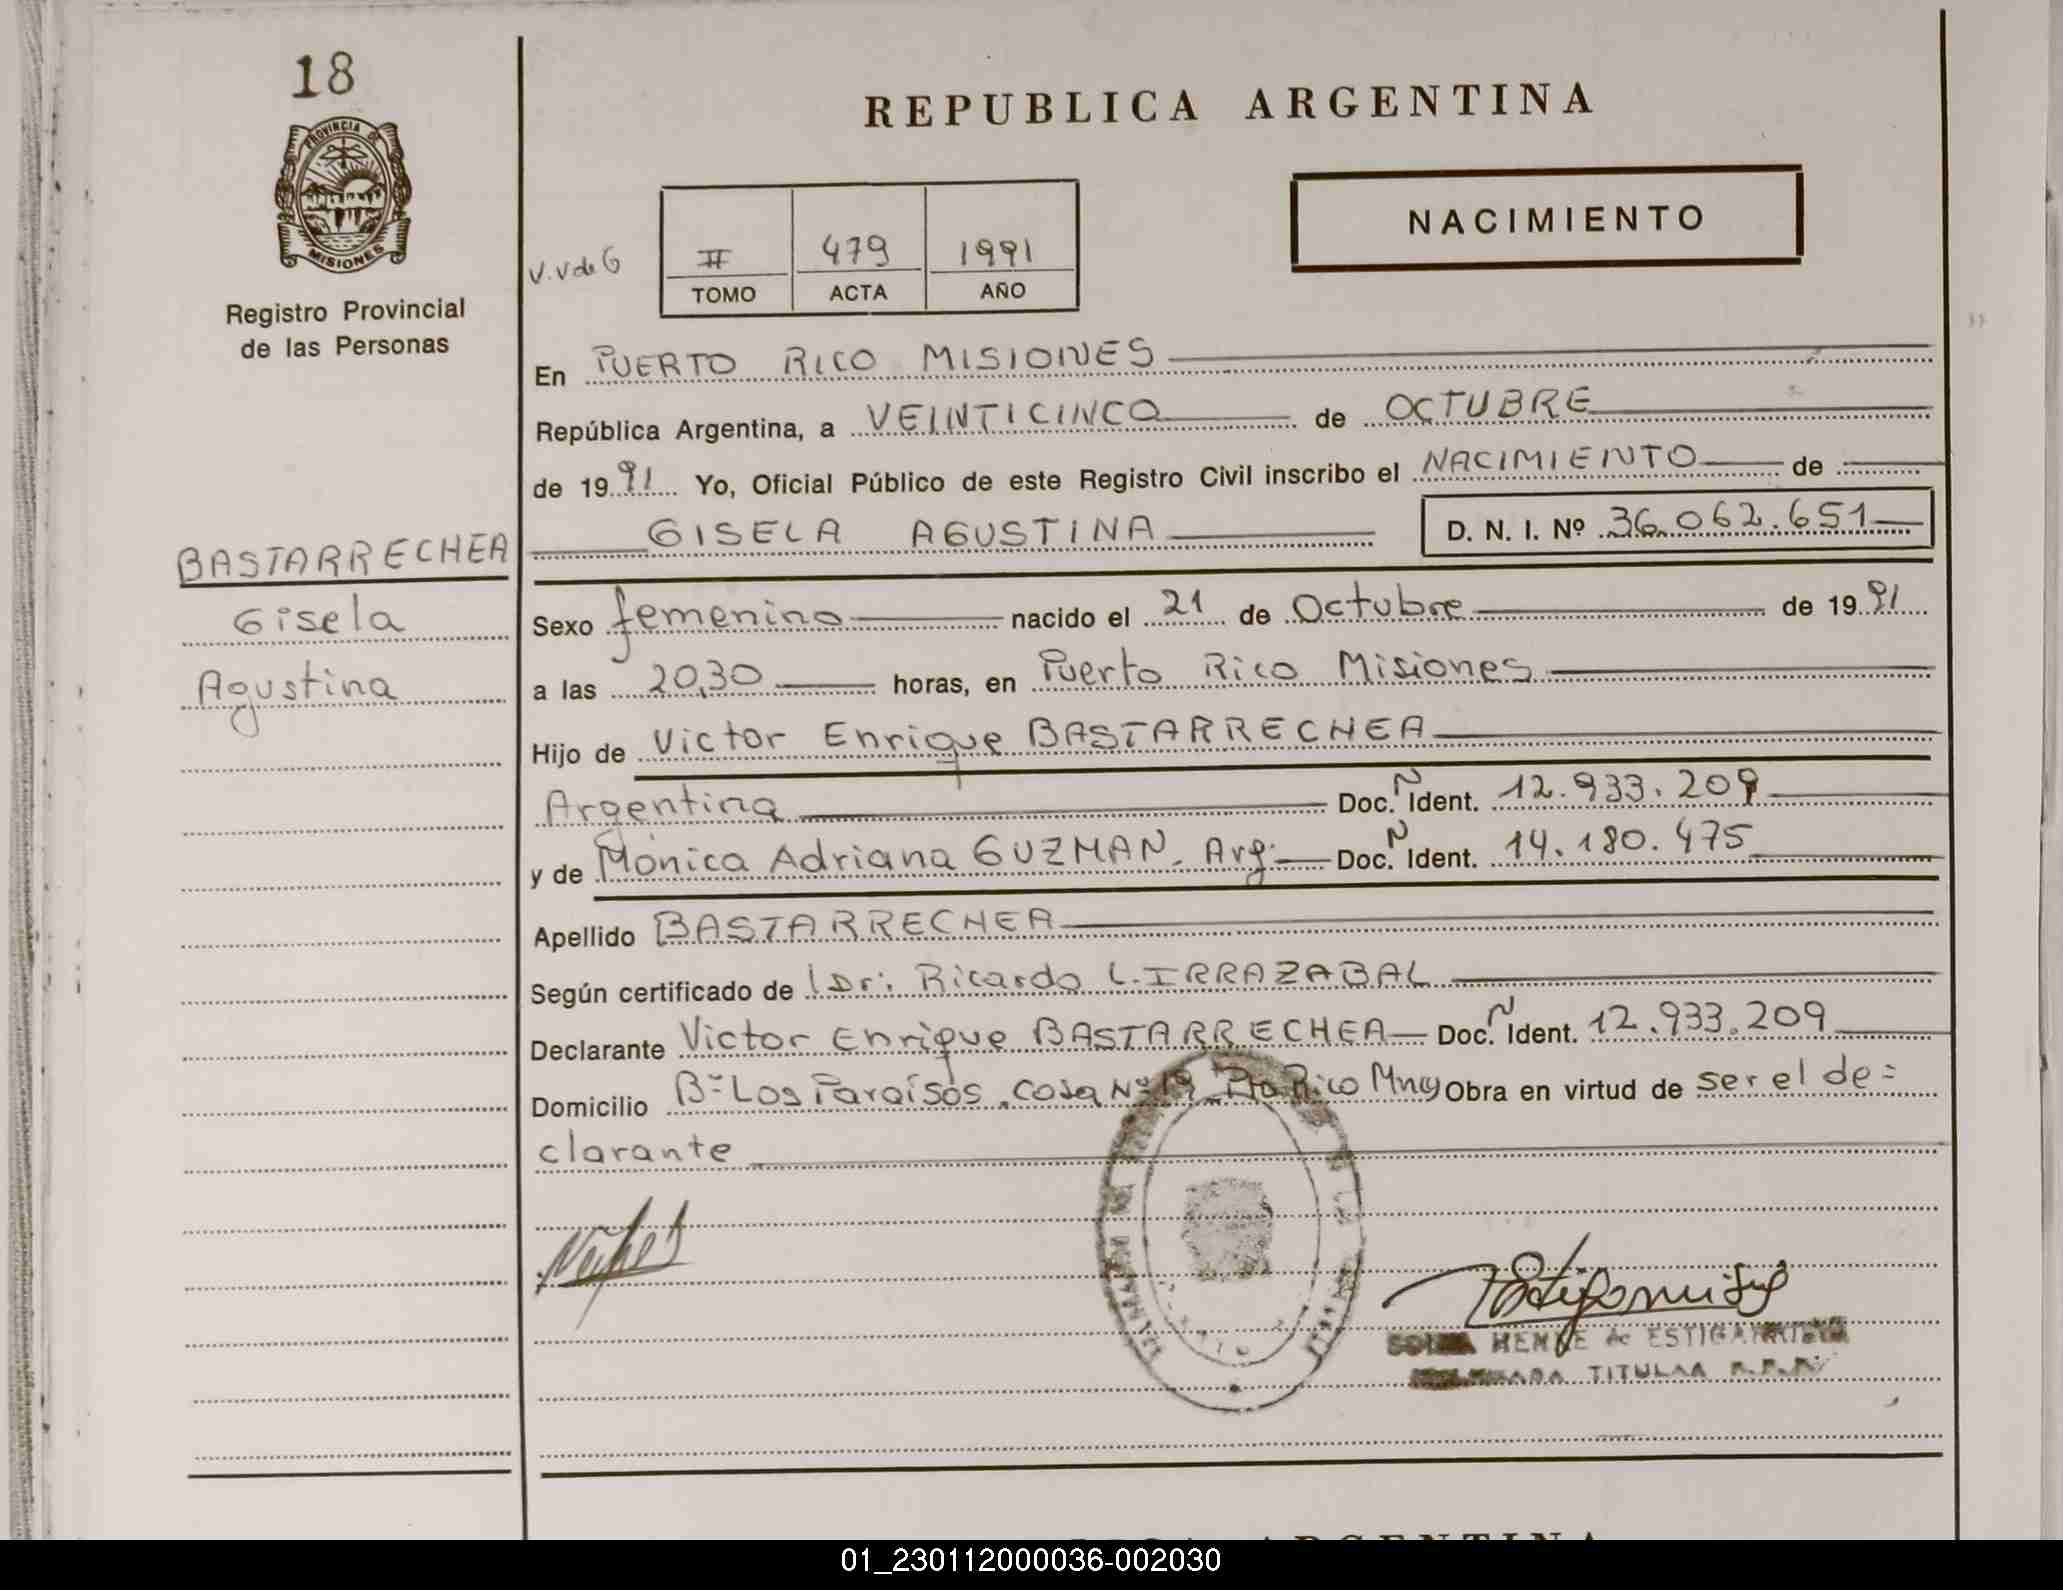 18
REPUBLICA ARGENTINA
PROVINCIA DE
MISIONES
NACIMIENTO
V. V de G
II 479 1991
TOMO ACTA AÑO
Registro Provincial
de las Personas
En PUERTO RICO MISIONES
República Argentina, a VEINTICINCO de OCTUBRE
de 1991 Yo, Oficial Público de este Registro Civil inscribo el NACIMIENTO de
GISELA AGUSTINA D. N. I. Nº 36.062.651
BASTARRECHEA
Gisela
Agustina
Sexo femenino nacido el 21 de Octubre de 1991
a las 20,30 horas, en Puerto Rico Misiones
Hijo de Victor Enrique BASTARRECHEA
Argentina Doc. N Ident. 12.933.209
y de Mónica Adriana GUZMAN. Arg. Doc. N Ident. 14.180.475
Apellido BASTARRECHEA
Según certificado de Dr. Ricardo L. IRRAZABAL
Declarante Victor Enrique BASTARRECHEA Doc. N Ident. 12.933.209
Domicilio Bº Los Paraísos. Casa Nº 19 Pto Rico Mnes Obra en virtud de ser el de=
clarante
HENKE de ESTIGARRIBIA
TITULAR R.P.P.
ARGENTINA
01_230112000036-002030